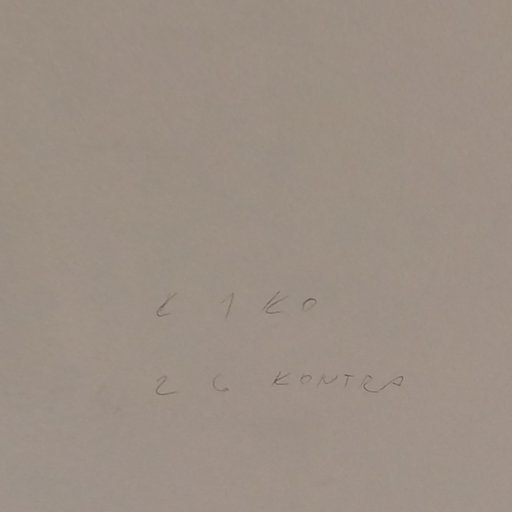 L 1 KO
2 6 KONTRA